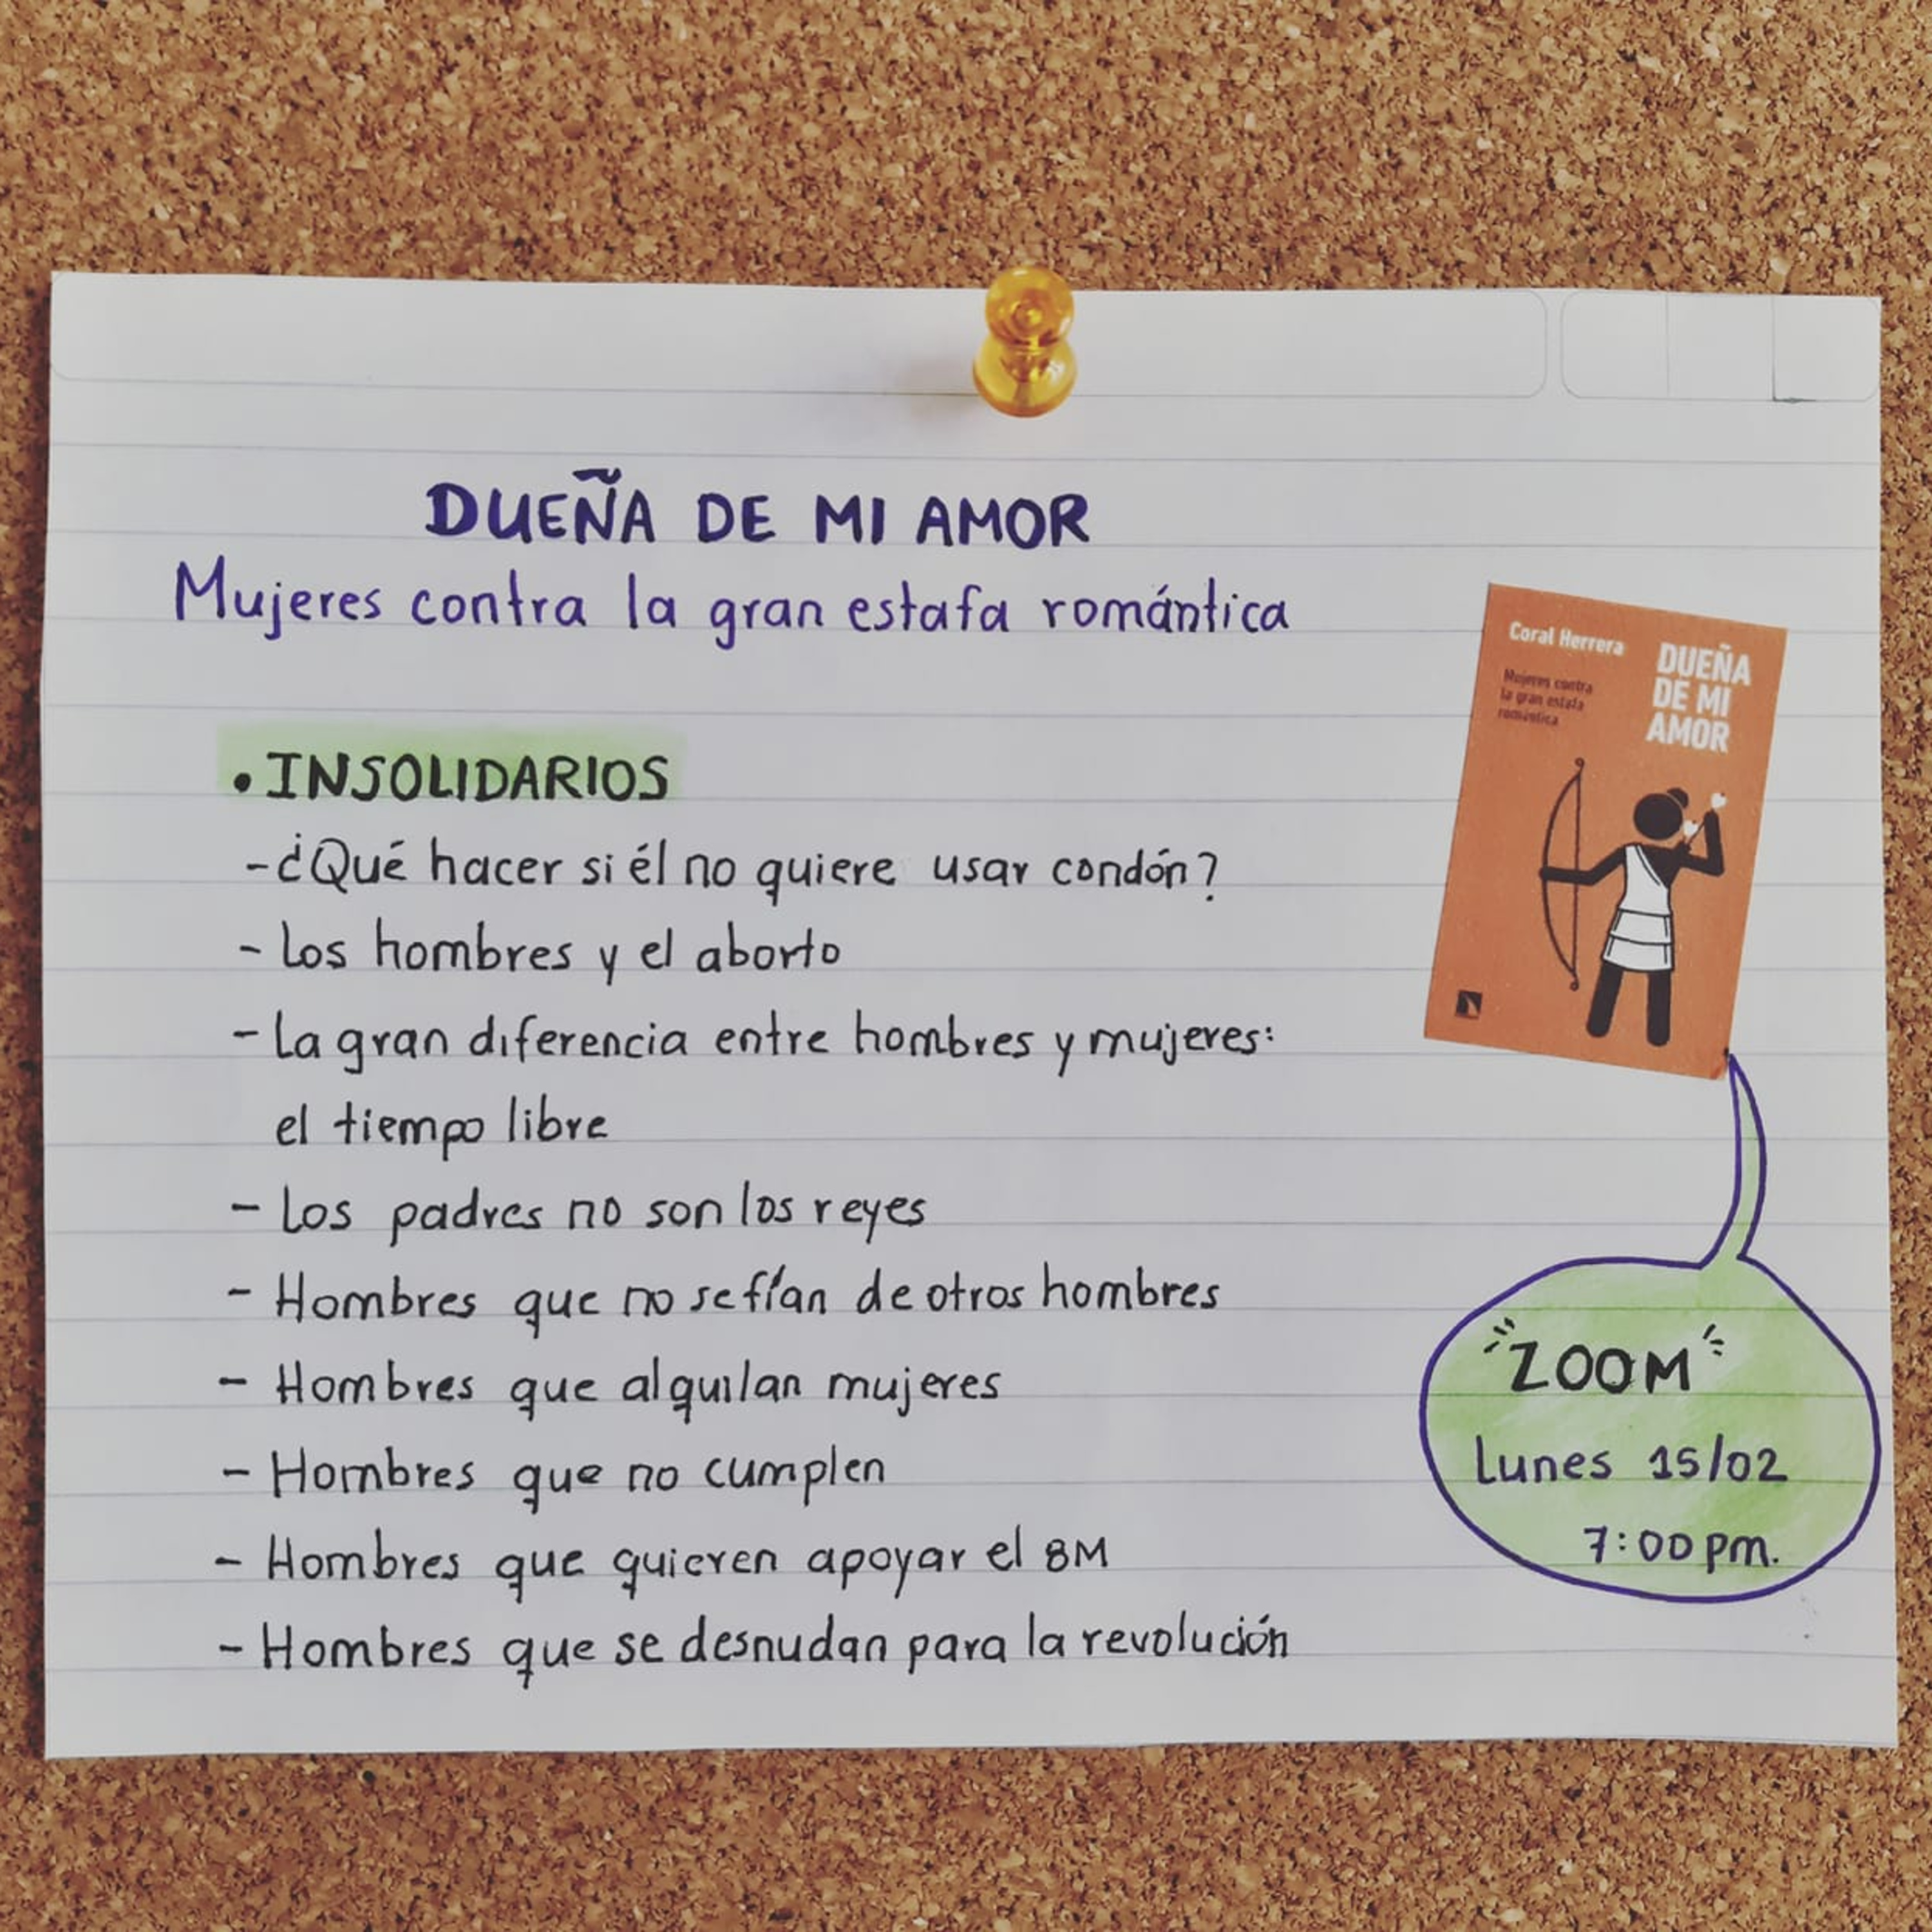 DUEÑA DE MI AMOR
Mujeres contra la gran estafa romántica
• INSOLIDARIOS
- ¿Qué hacer si él no quiere usar condón?
- Los hombres y el aborto
- La gran diferencia entre hombres y mujeres:
el tiempo libre
- Los padres no son los reyes
- Hombres que no se fían de otros hombres
- Hombres que alquilan mujeres
- Hombres que no cumplen
- Hombres que quieren apoyar el 8M
- Hombres que se desnudan para la revolución
Coral Herrera
Mujeres contra
la gran estafa
romántica
DUEÑA
DE MI
AMOR
"ZOOM"
Lunes 15/02
7:00 pm.